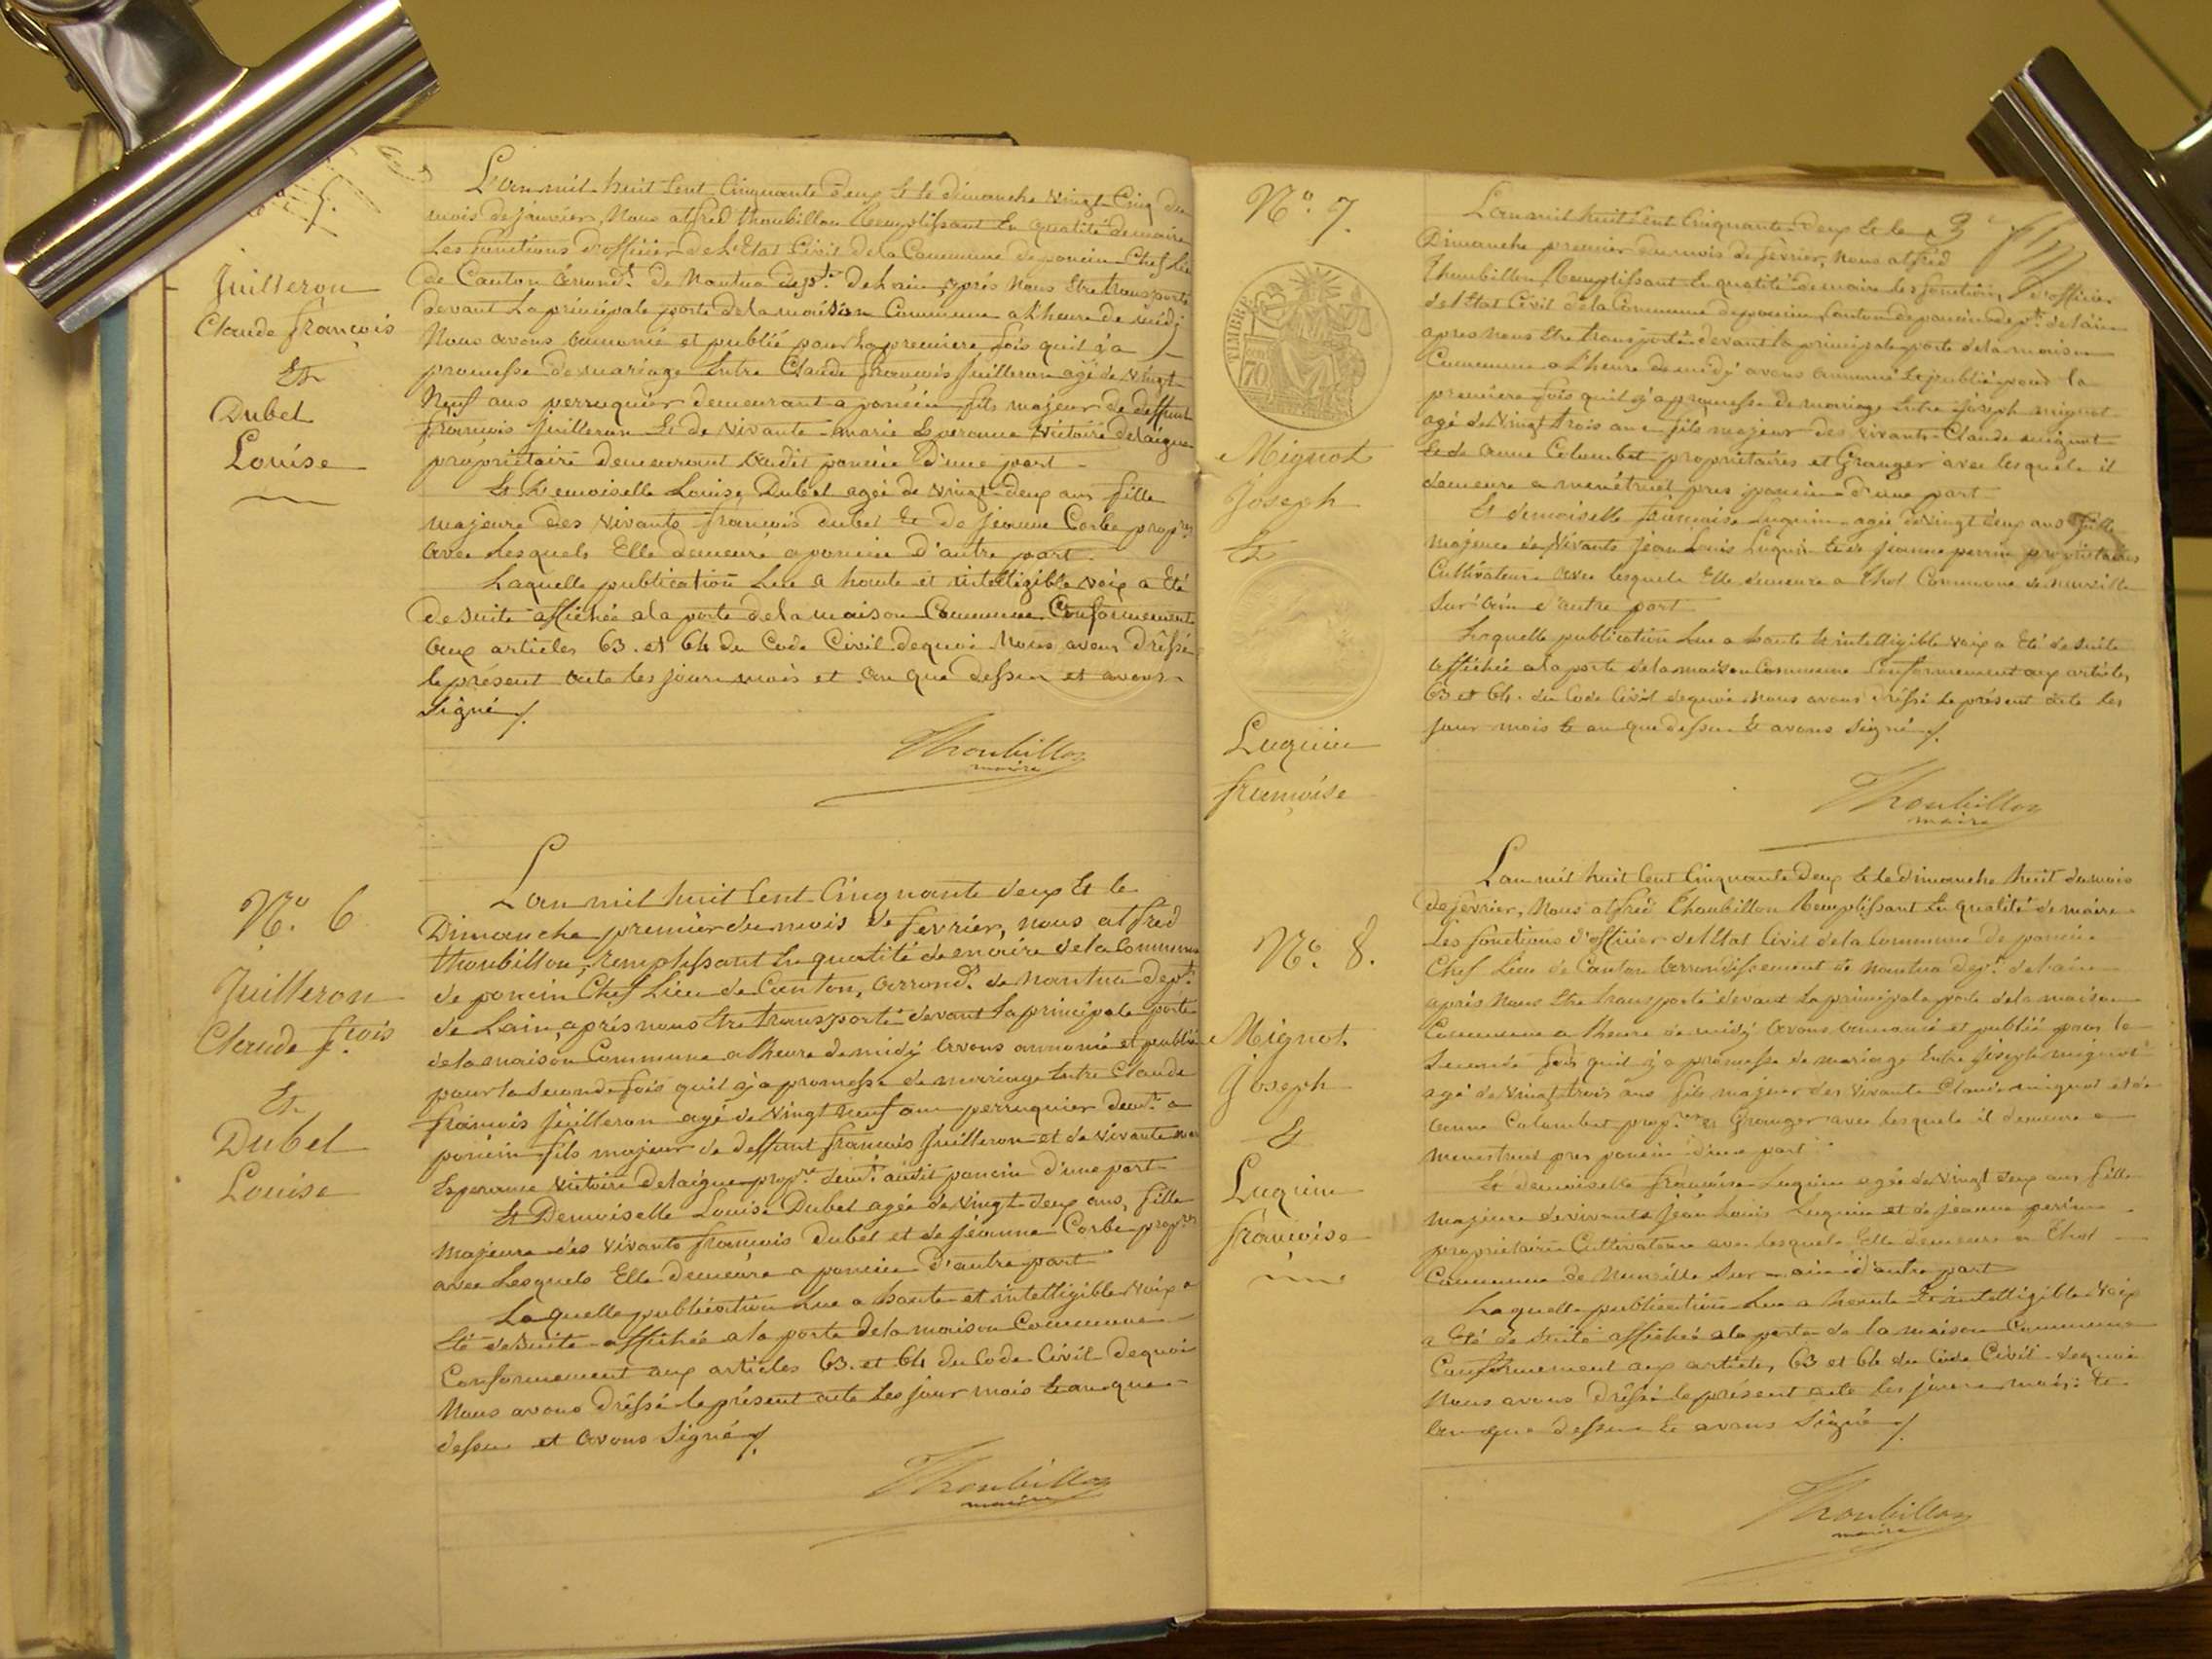 5.
Juilleron
Claude françois
Et
Dubel
Louise
L'an mil huit Cent Cinquante Deux Et le dimanche vingt Cinq du
mois de janvier, Nous alfred thoubillon Remplissant En qualité de maire
Les fonctions d'officier de L'Etat Civil de la Commune de poncin Chef Lieu
de Canton arrond.t de Nantua dep.t de Lain, après Nous Etre transporté
devant La principale porte de la maison Commune a L'heure de midj
Nous avons annoncé et publié pour La premiere fois quil y a
promesse de mariage Entre Claude françois Juilleron agé de vingt
Neuf ans perruquier demeurant a poncin fils majeur de deffunt
françois juilleron Et de vivante marie Esperance victoire delaigue
propriétaire demeurant audit poncin d'une part
Et Demoiselle Louise Dubel agée de vingt deux ans fille
majeure des vivants françois dubel Et de jeanne Corbe prop.res
avec Lesquels Elle demeure a poncin D'autre part
Laquelle publication Lue a haute et intelligible voix a Eté
de suite affichée a la porte de la maison Commune Conformement
aux articles 63. et 64 du Code Civil dequoi Nous avons dréssé
le présent acte les jour mois et an que dessus et avons
Signé
Thoubillon
maire
N.o 6
Juilleron
Claude f.cois
Et
Dubel
Louise
L'an mil huit Cent Cinquante deux Et le
Dimanche premier du mois de fevrier, nous alfred
thoubillon, remplissant En qualité de maire de la Commune
de poncin Chef Lieu de Canton, arrond.t de Nantua dep.t
de Lain, après nous Etre transporté devant La principale porte
de la maison Commune a L'heure de midj avons annoncé et publié
pour la Seconde fois quil y a promesse de mariage Entre Claude
françois juilleron agé de vingt neuf ans perruquier dem.t a
poncin fils majeur de deffunt françois juilleron et de vivante
Esperance victoire delaigue prop.re dem.t audit poncin d'une part
Et Demoiselle Louise Dubel agée de vingt deux ans, fille
majeure des vivants françois Dubel et de jéanne Corbe prop.res
avec Lesquels Elle demeure a poncin D'autre part
Laquelle publication Lue a haute et intelligible voix a
Eté de suite affichée a la porte de la maison Commune
Conformement aux articles 63. et 64 du Code Civil dequoi
Nous avons dréssé le présent acte Les jour mois Et an que
dessus et avons Signé
Thoubillon
maire
N.o 7.
TIMBRE
70
Mignot
Joseph
Et
Luquin
françoise
L'an mil huit Cent Cinquante deux Et le 3
Dimanche premier du mois de fevrier, Nous alfred
Thoubillon Remplissant En qualité de maire les fonctions d'officier
de l'Etat Civil de la Commune de poncin Canton de poncin dep.t de L'ain
apres nous Etre transporté devant la principale porte de la maison
Commune a L'heure de midj avons annoncé Et publié pour la
premiere fois quil y a promesse de mariage Entre joseph mignot
agé de vingt trois ans fils majeur des vivants Claude mignot
Et de anne Colombet propriétaires et Granger avec lesquels il
demeure a menétruel pres poncin d'une part
Et demoiselle françoise Luquin agée de vingt deux ans fille
majeure de vivants Jean Louis Luquin Et de jeanne perrin propriétaires
Cultivateurs avec lesquels Elle demeure a Thol Commune de neuville
sur ain d'autre part
Laquelle publication Lue a haute Et intelligible voix a Eté de suite
affichée a la porte de la maison Commune Conformement aux articles
63 et 64. du Code Civil dequoi nous avons dréssé le présent acte les
jour mois Et an que dessus Et avons signé
Thoubillon
maire
N.o 8.
Mignot
Joseph
Et
Luquin
françoise
L'an mil huit Cent Cinquante Deux Et le dimanche huit du mois
de fevrier, Nous alfred Thoubillon Remplissant En qualité de maire
Les fonctions d'officier de l'Etat Civil de la Commune de poncin
Chef Lieu de Canton arrondissement de Nantua dep.t de lain
après Nous Etre transporté devant La principale porte de la maison
Commune a L'heure de midj avons annoncé et publié pour la
Seconde fois quil y a promesse de mariage Entre joseph mignot
agé de vingt trois ans fils majeur des vivants Claude mignot et de
anne Colombet prop.res et Granger avec lesquels il demeure a
menetruel pres poncin d'une part
Et demoiselle françoise Luquin agée de vingt deux ans fille
majeure de vivants jéan Louis Luquin et de jéanne perrin
propriétaires Cultivateurs avec lesquels Elle demeure a Thol
Commune de Neuville sur ain d'autre part
Laquelle publication Lue a haute Et intelligible voix
a Eté de suite affichée a la porte de la maison Commune
Conformement aux articles 63 et 64 du Code Civil dequoi
Nous avons dréssé le présent acte les jour mois Et
an que dessus Et avons signé
Thoubillon
maire